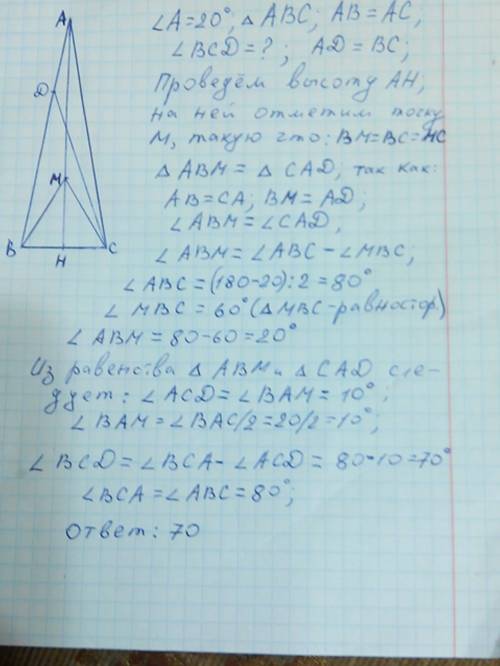 ∠A=20°; △ABC; AB=AC;
∠BCD=?; AD=BC;
Проведём высоту AH,
на ней отметим точку
M, такую что: BM=BC=MC
△ABM=△CAD, так как:
AB=CA; BM=AD;
∠ABM=∠CAD,
∠ABM=∠ABC-∠MBC;
∠ABC=(180-20):2=80°
∠MBC=60° (△MBC-равностор)
∠ABM=80-60=20°
Из равенства △ABM и △CAD сле-
дует: ∠ACD=∠BAM=10°;
∠BAM=∠BAC/2=20/2=10°;
∠BCD=∠BCA-∠ACD=80-10=70°
∠BCA=∠ABC=80°;
Ответ: 70
A
D
M
B
C
H